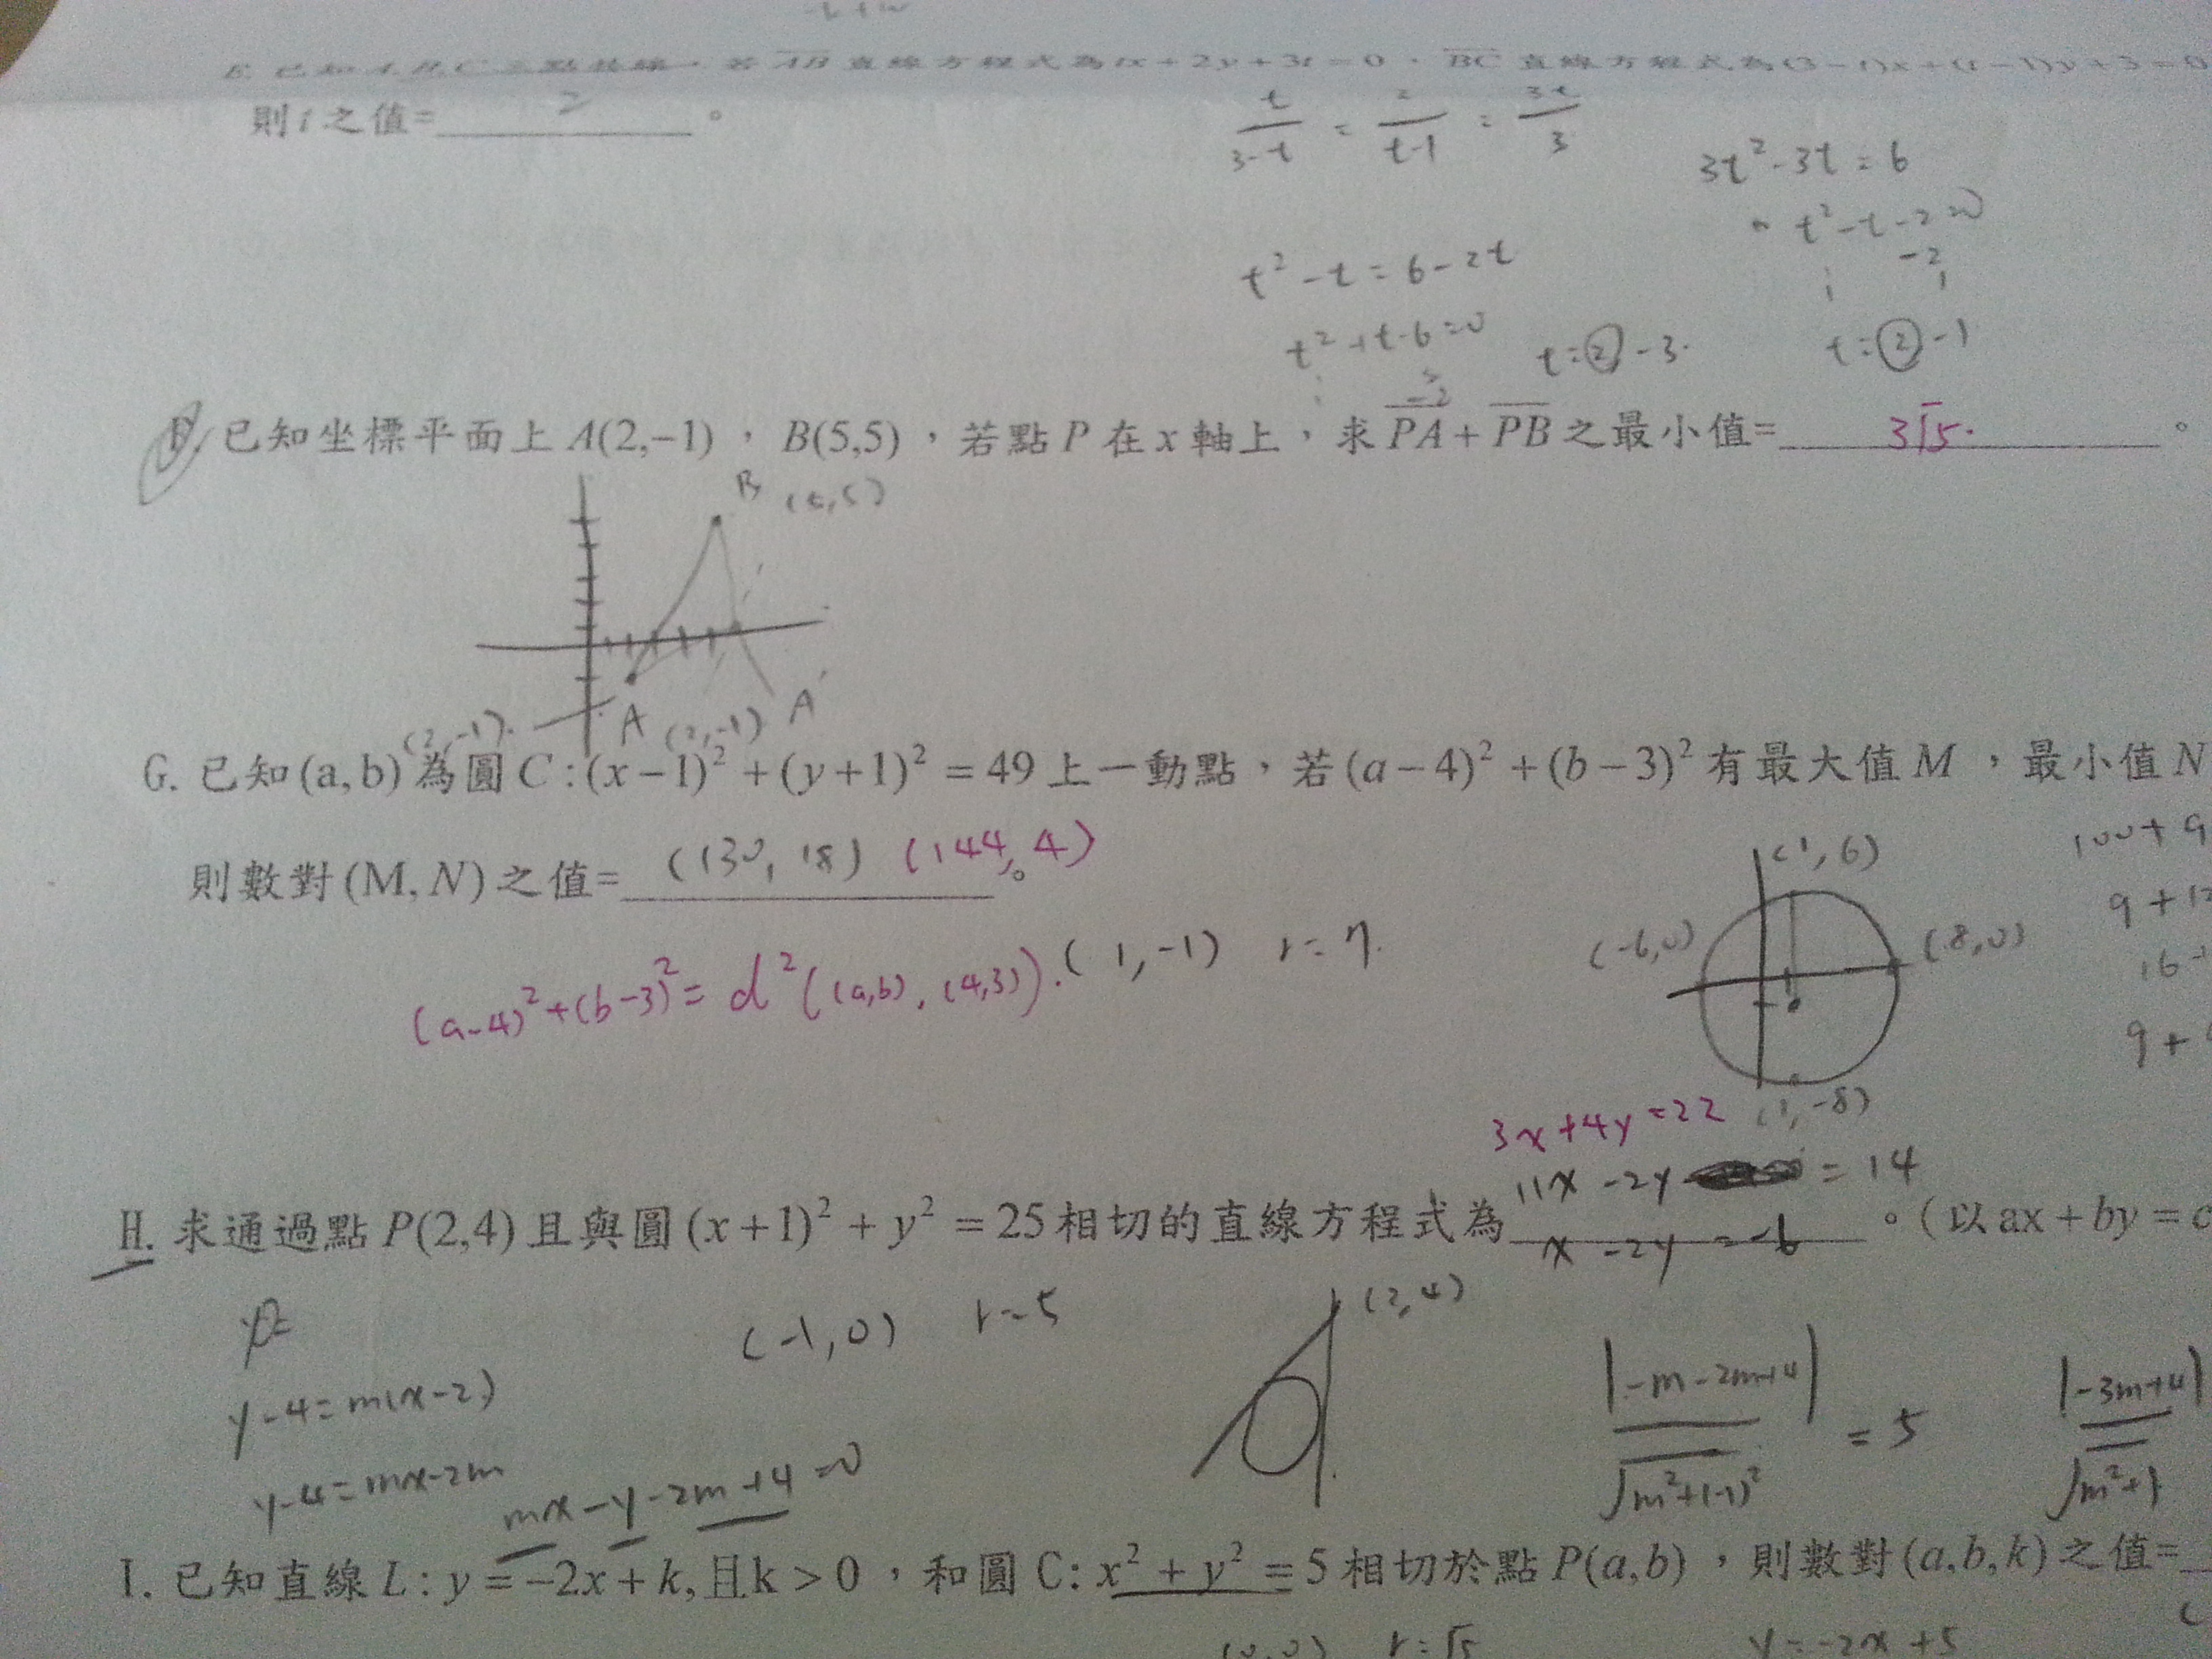 E. 已知 A,B,C 三點共線,若 AB 直線方程式為 tx+2y+3t=0,BC 直線方程式為 (3-t)x+(t-1)y+3=0
則 t 之值= 2 。
t/(3-t) = 2/(t-1) = 3t/3
3t²-3t=6
t²-t-2=0
t²-t=6-2t
t²+t-6=0 t=2,-3. t=2,-1
F. 已知坐標平面上 A(2,-1),B(5,5),若點 P 在 x 軸上,求 PA+PB 之最小值= 3√5. 。
B (5,5)
(2,-1). A (2,-1) A'
G. 已知(a,b)為圓 C:(x-1)²+(y+1)²=49 上一動點,若(a-4)²+(b-3)²有最大值 M,最小值 N
則數對(M,N)之值= (130, 18) (144, 4) 。
(1,6) 100+9
(-6,0) (8,0)
(a-4)²+(b-3)²= d²((a,b), (4,3)). (1,-1) r=7.
(1,-8)
3x+4y=22
11x-2y =14
H. 求通過點 P(2,4)且與圓(x+1)²+y²=25相切的直線方程式為 x-2y=-6 。(以 ax+by=c
y=
(-1,0) r=5 (2,4)
y-4=m(x-2) |-m-2m+4| / √m²+(-1)² = 5 |-3m+4| / √m²+1
y-4=mx-2m mx-y-2m+4=0
I. 已知直線 L:y=-2x+k,且k>0,和圓 C:x²+y²=5相切於點 P(a,b),則數對(a,b,k)之值=
(0,0) r=√5 y=-2x+5